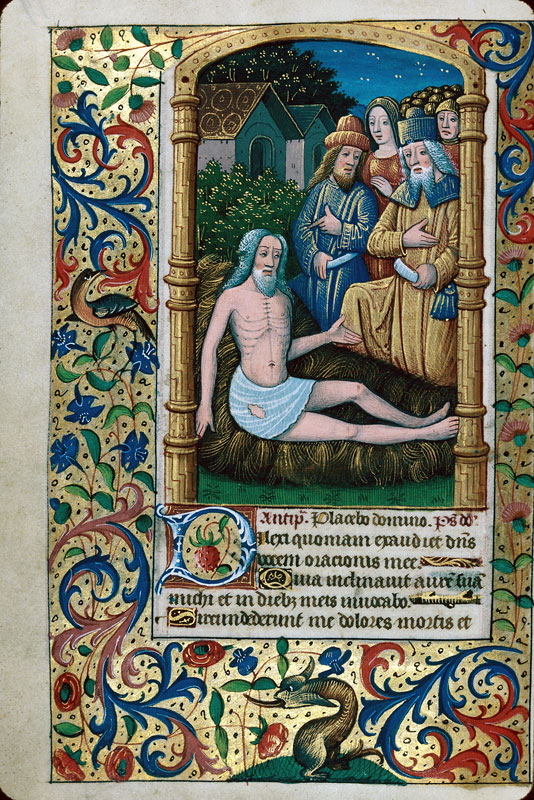 Antiph. Placebo domino. ps dd.
Dilexi quoniam exaudiet dns
vocem oracionis mee.
Quia inclinauit aurē suā
michi et in dieb; meis inuocabo.
Circundederunt me dolores mortis et